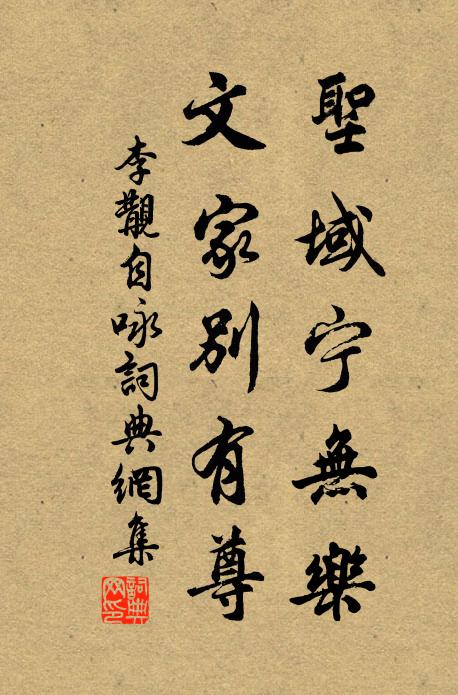 聖域宁無樂
文家別有尊
李覯自咏詞典網集
詞典網印